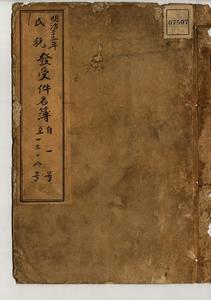 明治十三年
民税發受件名簿 自一号
至一三〇八号
07507